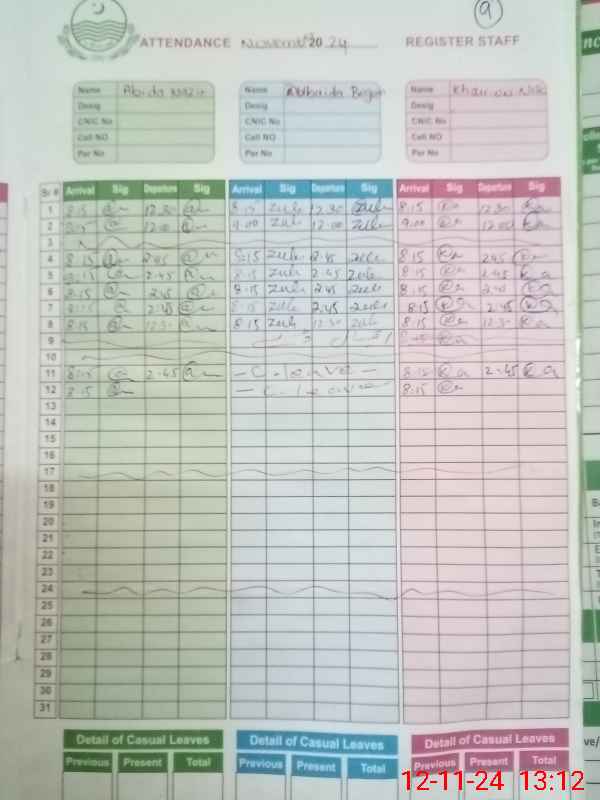 9
ATTENDANCE November 20 24 REGISTER STAFF
Name Abida Nazir Name Begum Name Khair un Nisa
Desig Desig Desig
CNIC No CNIC No CNIC No
Cell NO Cell NO Cell NO
Per No Per No Per No
Sr # Arrival Sig Departure Sig Arrival Sig Departure Sig Arrival Sig Departure Sig
1 8:15 12:30 8:15 Zub 12:30 Zub 8:15 12:30
2 12:00 9:00 Zub 12:00 Zub 9:00 12:00
3
4 8:15 2:45 8:15 Zub 2:45 Zub 8:15 2:45
5 8:15 2:45 8:15 Zub 2:45 Zub 8:15 2:45
6 8:15 2:45 8:15 Zub 2:45 Zub 8:15 2:45
7 8:15 2:45 8:15 Zub 2:45 Zub 8:15 2:45
8 8:15 12:30 8:15 Zub 12:30 Zub 8:15 12:30
9
10
11 8:15 2:45 - C. leave - 8:15 2:45
12 8:15 - C. leave 8:15
13
14
15
16
17
18
19
20
21
22
23
24
25
26
27
28
29
30
31
Detail of Casual Leaves Detail of Casual Leaves Detail of Casual Leaves
Previous Present Total Previous Present Total Previous Present Total
12-11-24 13:12